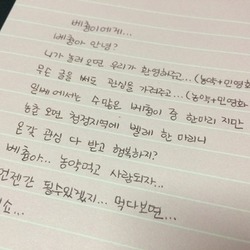 베충이에게...
베충아 안녕?
니가 놀러 오면 우리가 환영해주고...(농약+민영화
무슨 글을 써도 관심을 가져주고...(농약+민영화
일베에서는 수많은 베충이 중 한마리 지만
농촌 오면 청정지역에 벌레 한 마리니
온갖 관심 다 받고 행복하지?
베충아.. 농약먹고 사람되자..
언젠간 될수있겠지... 먹다보면...